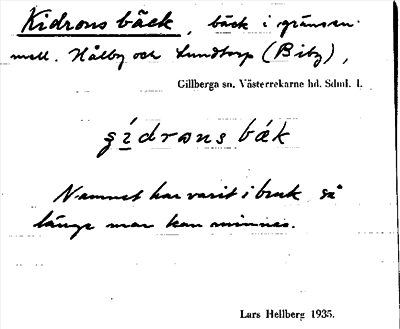 Kidrons bäck, bäck i gränsen
mell. Hålby och Lundtorp (Biby),
Gillberga sn. Västerrekarne hd. Sdml. l.
gídrɷns bǽk
Namnet har varit i bruk så
länge man kan minnas.
Lars Hellberg 1935.